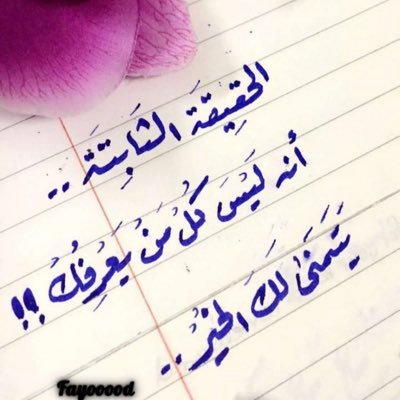 الحَقِيقَة الثَابِتَة ..
أنه لَيْسَ كُلُ مَنْ يَعْرِفُكْ !!
يَتَمَنىٰ لَكَ الخَيْرُ ..
Fayooood